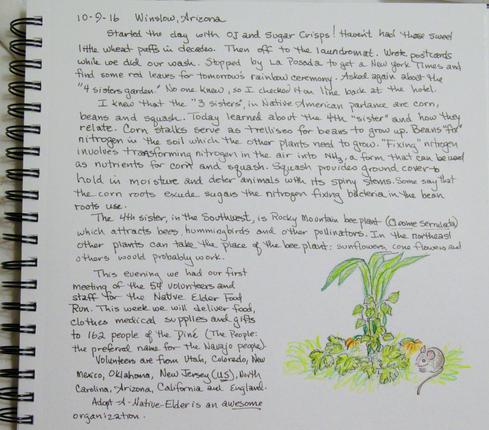 10-9-16 Winslow, Arizona
Started the day with OJ and Sugar Crisps! Haven't had those sweet
little wheat puffs in decades. Then off to the laundromat. Wrote postcards
while we did our wash. Stopped by La Posada to get a New York Times and
find some red leaves for tomorrow's rainbow ceremony. Asked again about the
"4 sisters garden." No one knew, so I checked it on line back at the hotel.
I knew that the "3 sisters", in Native American parlance are corn,
beans and squash. Today learned about the 4th "sister" and how they
relate. Corn stalks serve as trellises for beans to grow up. Beans "fix"
nitrogen in the soil which the other plants need to grow. "Fixing" nitrogen
involves transforming nitrogen in the air into NH3, a form that can be used
as nutrients for corn and squash. Squash provides ground cover to
hold in moisture and deter animals with its spiny stems. Some say that
the corn roots exude sugars the nitrogen fixing bacteria in the bean
roots use.
The 4th sister, in the Southwest, is Rocky Mountain bee plant (Cleome serrulata)
which attracts bees hummingbirds and other pollinators. In the northeast
other plants can take the place of the bee plant: sunflowers, cone flowers and
others would probably work.
This evening we had our first
meeting of the 54 volunteers and
staff for the Native Elder Food
Run. This week we will deliver food,
clothes medical supplies and gifts
to 162 people of the Diné (The People:
the preferred name for the Navajo people)
Volunteers are from Utah, Colorado, New
Mexico, Oklahoma, New Jersey (US), North
Carolina, Arizona, California and England.
Adopt-A-Native-Elder is an awesome
organization.